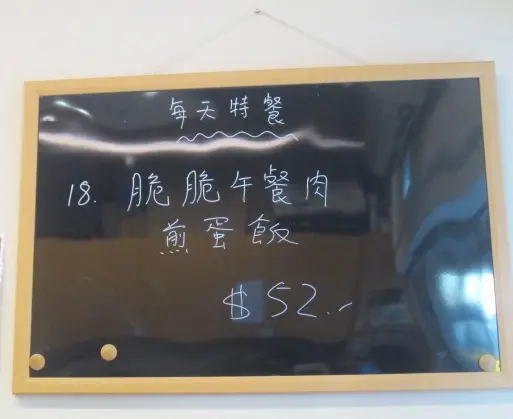 每天特餐
18. 脆脆午餐肉
煎蛋飯
$52.-